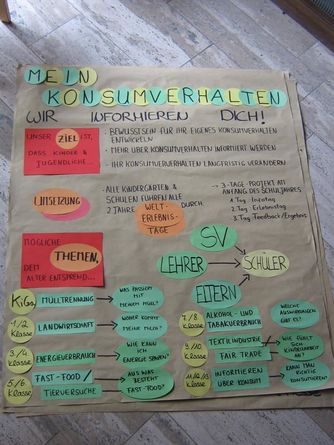 MEIN
KONSUMVERHALTEN
WIR INFORMIEREN DICH!
UNSER ZIEL IST,
DASS KINDER &
JUGENDLICHE...
- BEWUSSTSEIN FÜR IHR EIGENES KONSUMVERHALTEN
ENTWICKELN
- MEHR ÜBER KONSUMVERHALTEN INFORMIERT WERDEN
- IHR KONSUMVERHALTEN LANGFRISTIG VERÄNDERN
UMSETZUNG
- ALLE KINDERGÄRTEN &
SCHULEN FÜHREN ALLE
2 JAHRE WELT-
ERLEBNIS-
TAGE DURCH
→ 3-TAGE-PROJEKT AM
ANFANG DES SCHULJAHRES
1. Tag Infotag
2. Tag Erlebnistag
3. Tag Feedback/Ergebnis
MÖGLICHE
THEMEN,
DEM ALTER ENTSPREND...
SV
LEHRER
SCHÜLER
ELTERN
KiGa
MÜLLTRENNUNG
WAS PASSIERT MIT
MEINEM MÜLL?
1/2
Klasse
LANDWIRTSCHAFT
WOHER KOMMT
MEINE MILCH?
3/4
Klasse
ENERGIEVERBRAUCH
WIE KANN ICH
ENERGIE SPAREN?
5/6
Klasse
FAST-FOOD/
TIERVERSUCHE
AUS WAS
BESTEHT
FAST-FOOD?
7/8
Klasse
ALKOHOL- UND
TABAKVERBRAUCH
WELCHE
AUSWIRKUNGEN
GIBT ES?
9/10
Klasse
TEXTILINDUSTRIE
FAIR TRADE
WIE FÜHLT SICH
KINDERARBEIT
AN?
11/12/13
Klasse
INFORMIEREN
ÜBER KONSUM
KANN MAN
RICHTIG
KONSUMIEREN?